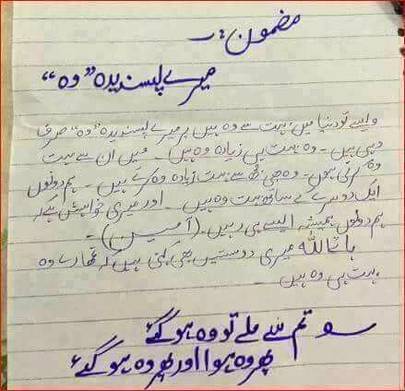 مضمون:۔
میرے پسندیدہ "وہ"
ویسے تو دنیا میں بہت سے وہ ہیں پر میرے پسندیدہ "وہ" صرف
وہی ہیں۔ وہ بہت ہی زیادہ وہ ہیں۔ میں ان سے بہت
وہ کرتی ہوں۔ وہ بھی مجھ سے بہت زیادہ وہ کرتے ہیں۔ ہم دونوں
ایک دوسرے کے ساتھ بہت وہ ہیں۔ اور میری خواہش ہے کہ
ہم دونوں ہمیشہ ایسے ہی رہیں۔ (آمین)۔
ماشاءاللہ میری دوستیں بھی کہتی ہیں کہ تمھارے وہ
بہت ہی وہ ہیں۔
تم سے ملے تو وہ ہو گئے
پھر وہ ہوا اور پھر وہ ہو گئے